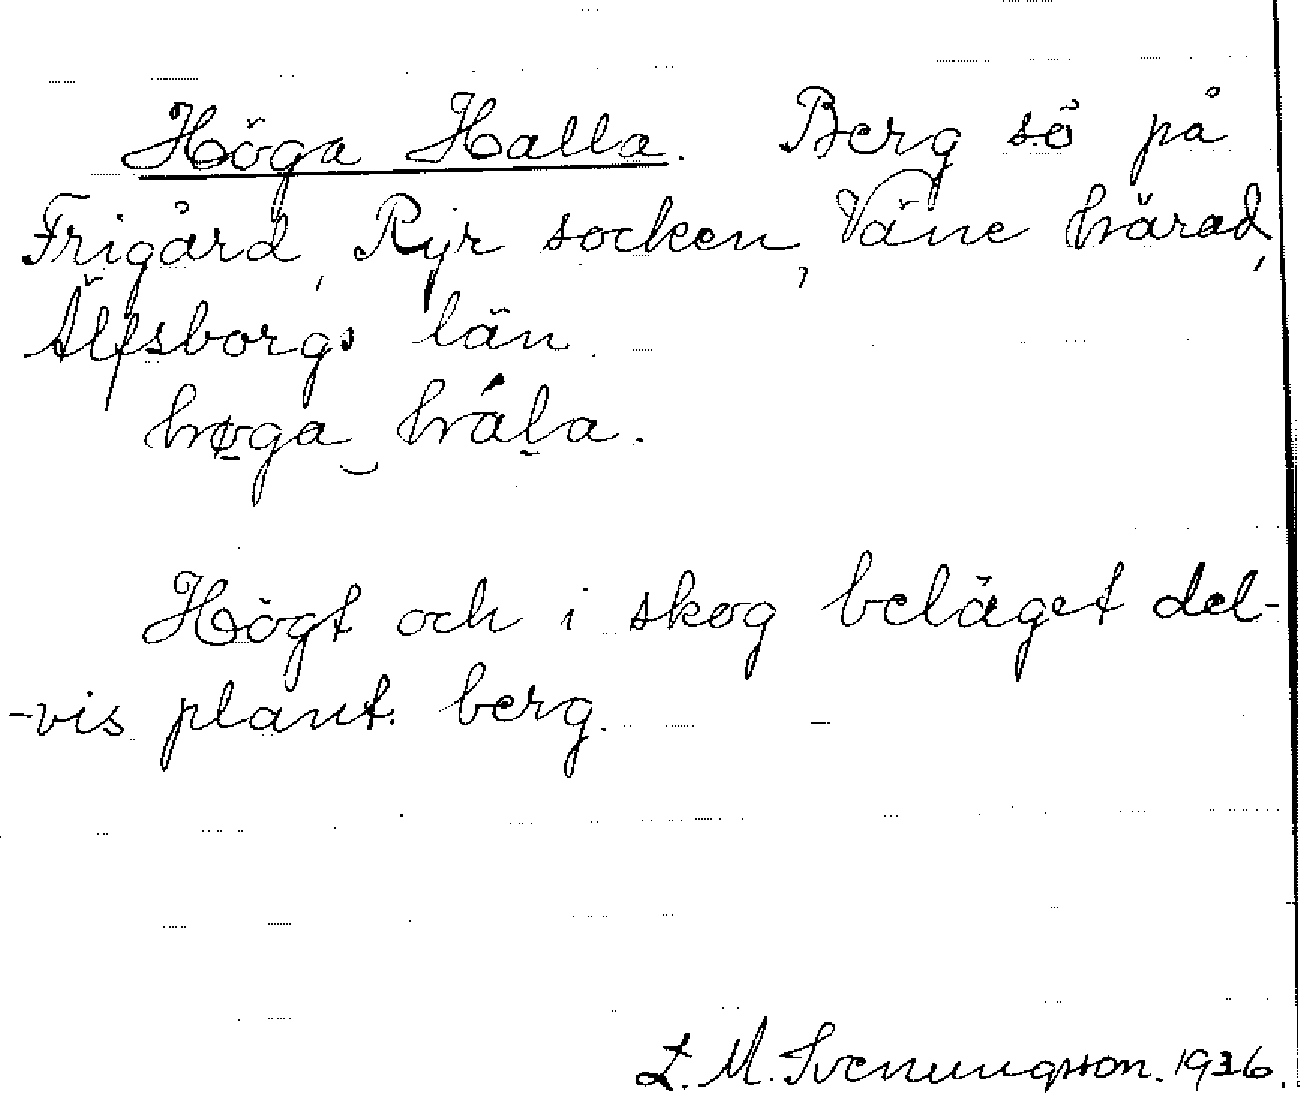 Höga Halla. Berg sö på
Frigård, Ryr socken, Väne härad,
Älfsborgs län.
høga hála.
Högt och i skog beläget del-
-vis plant. berg. –
L. M. Svenungsson. 1936.